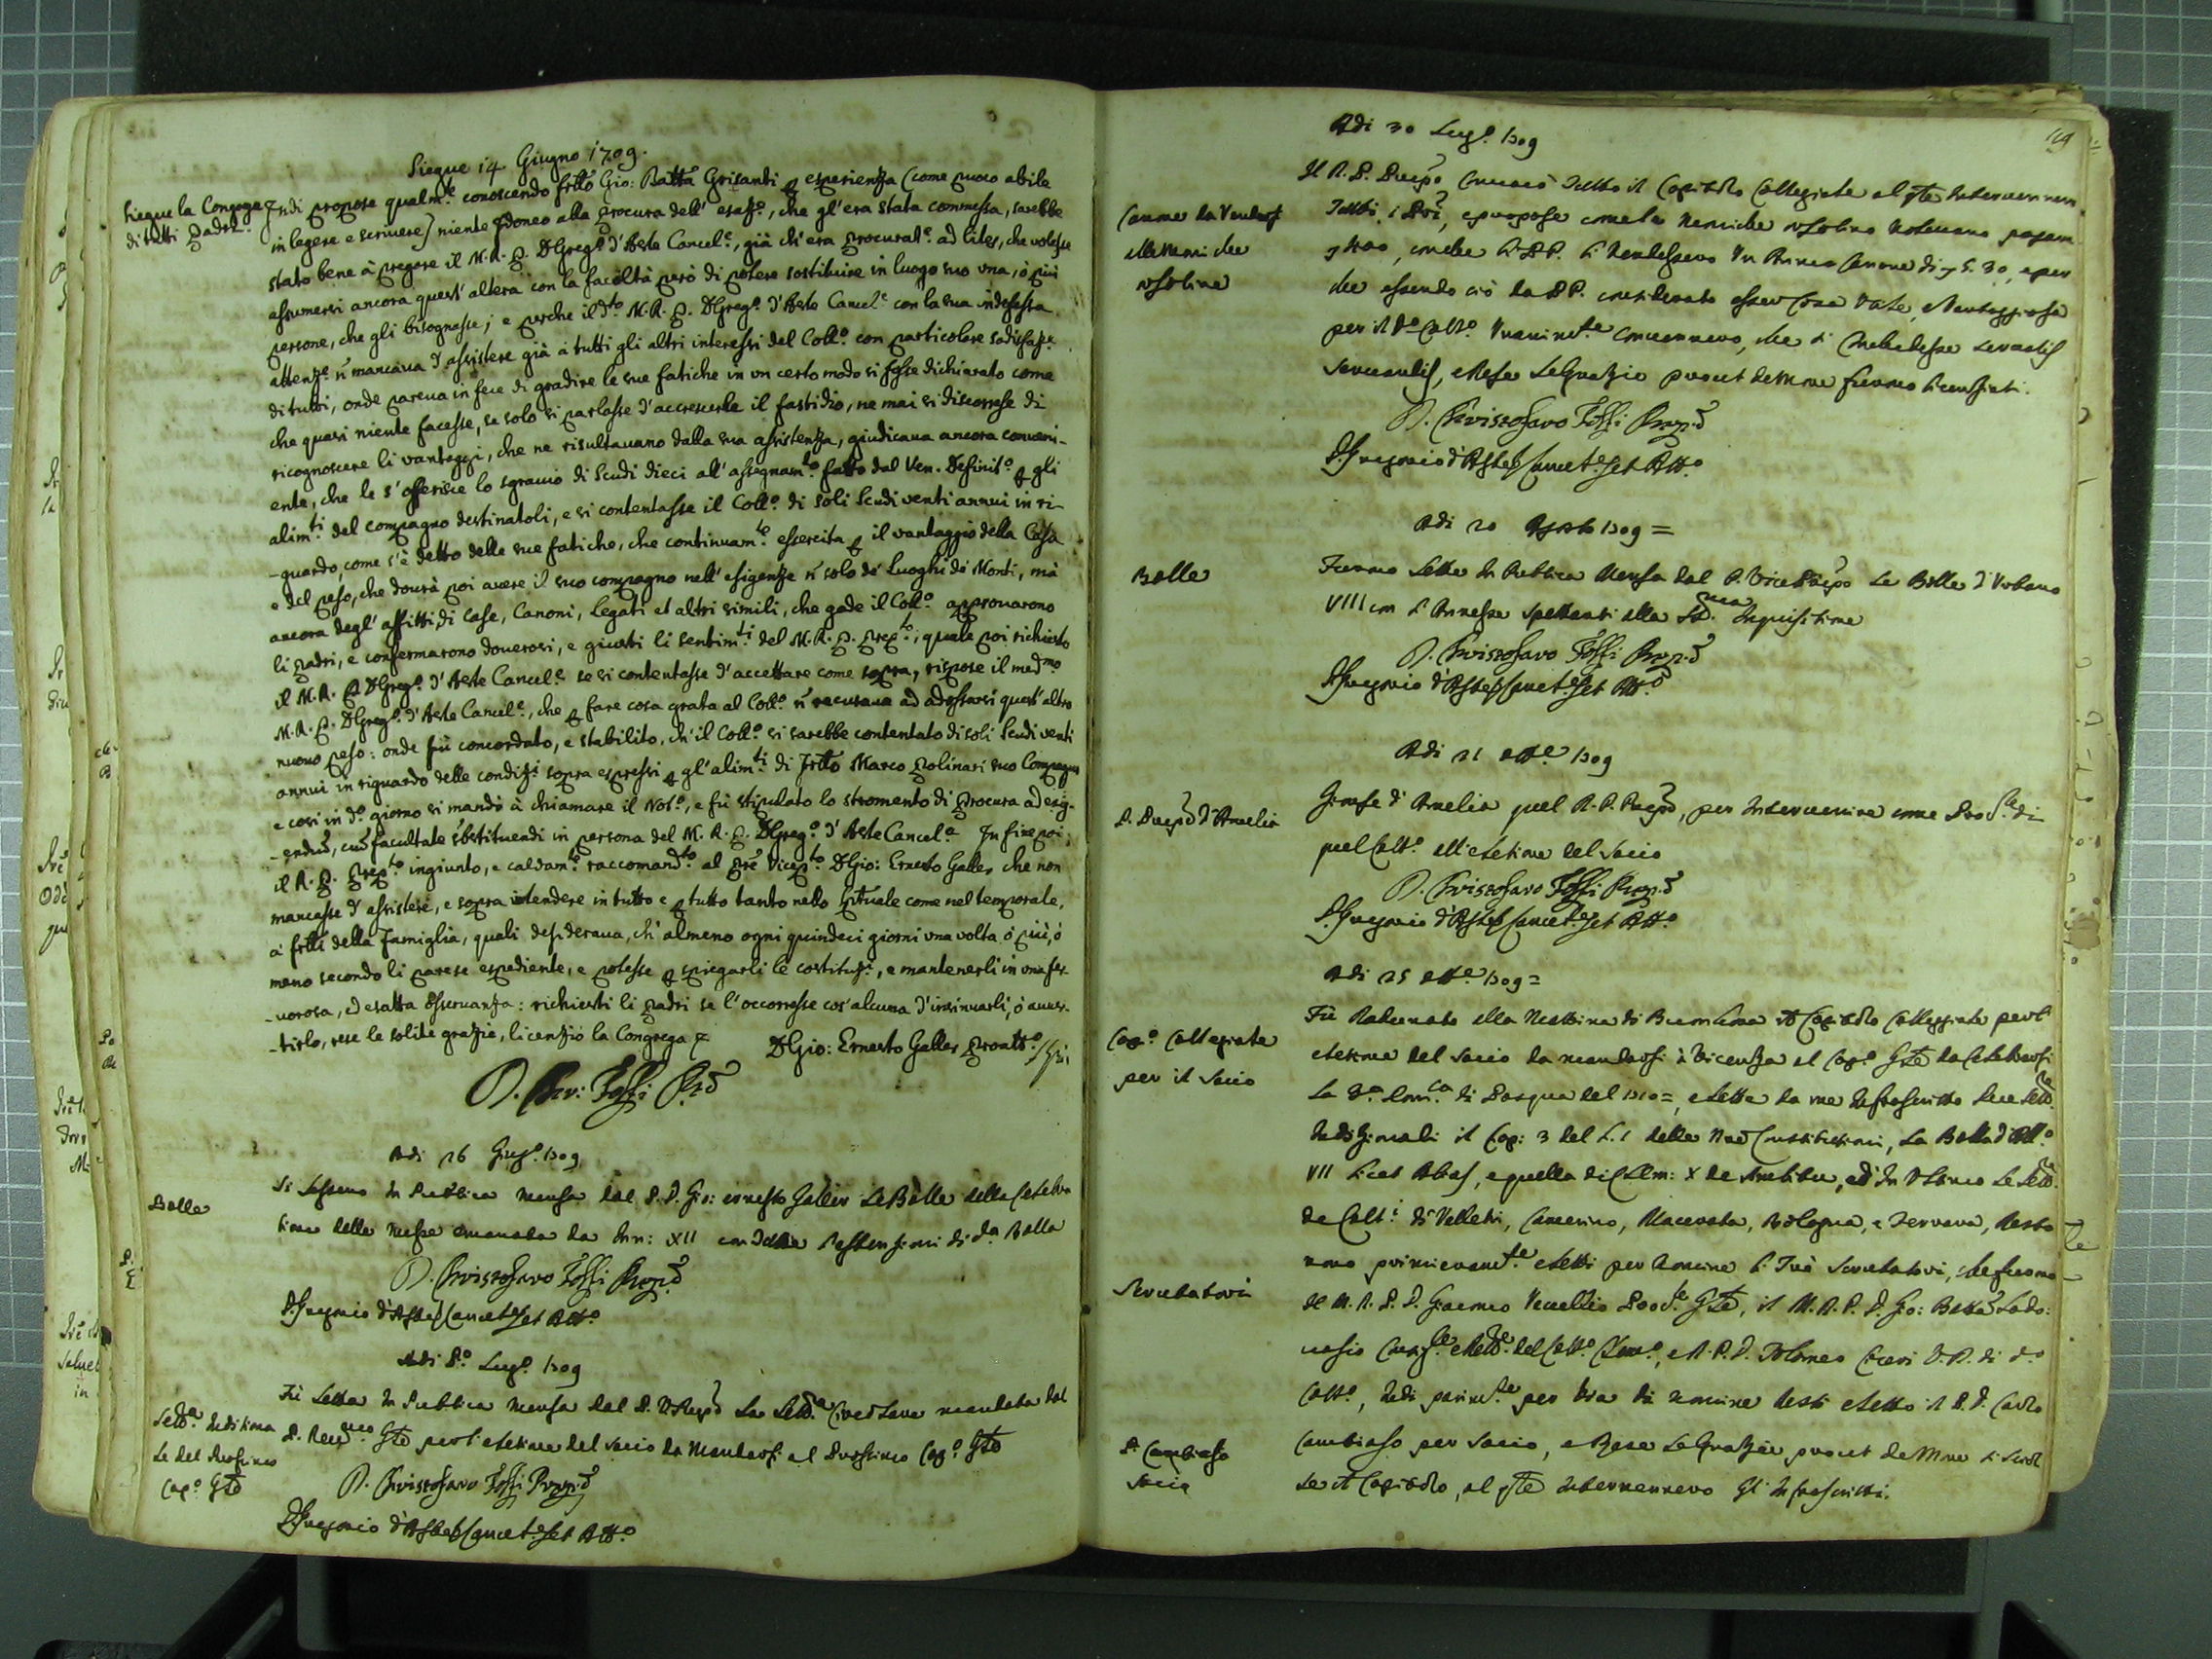 Siegue 14 Giugno 1709.
Siegue la Congrega
di tutti Padri.
Indi propose qualm.te conoscendo frłło Gio: Batta Grisanti p esperienza (come puoco abile
in legere e scrivere) niente Idoneo alla procura dell' esaz.e, che gl'era stata commessa, sarebbe
stato bene à pregare il M. R. P. D Greg.o d'Aste Cancel.e, già ch'era Procurat.e ad lites, che volesse
assumersi ancora quest' altera con la facoltà però di potere sostituire in luogo suo una, ò più
persone, che gli bisognasse; e perche il d.to M. R. P. D Greg.o d'Aste Cancel.e con la sua indefessa
attenz.e ñ mancava d'assistere già à tutti gli altri interessi del Coll.o con particolare sodisfaz.e
di tutti, onde pareva in fece di gradire le sue fatiche in un certo modo si fosse dichiarato come
che quasi niente facesse, se solo si parlasse d'accrescerle il fastidio, ne mai si discorresse di
ricognoscere li vantaggi, che ne risultavano dalla sua assistenza, giudicava ancora conveni-
ente, che le s'offerisce lo sgravio di Scudi dieci all' assegnam.to fatto dal Ven. Definit.o p gli
alim.ti del compagno destinatoli, e si contentasse il Coll.o di soli Scudi venti annui in ri-
-guardo, come s'è detto delle sue fatiche, che continuam.te essercita p il vantaggio della Casa
e del peso, che dourà poi avere il suo compagno nell' esigenze ñ solo de' Luoghi de' Monti, mà
ancora degl' affitti di Case, Canoni, Legati et altri simili, che gode il Coll.o approvarono
li Padri, e confermarono doverosi, e giusti li sentim.ti del M. R. P. Prep.to, quale poi richiesto
il M. R. P D Greg.o d'Aste Cancel.e se si contentasse d'accettare come sopra, rispose il med.mo
M. R. P. D Greg.o d'Aste Cancel.e, che p fare cosa grata al Coll.o ñ recusava ad adossarsi quest' altro
nuovo peso: onde fù concordato, e stabilito, ch'il Coll.o si sarebbe contentato di soli Scudi venti
annui in riguardo delle condiz.i sopra espressi p gl'alim.ti di Frłło Marco Polinari suo Compagno
e così in d.o giorno si mandò à chiamare il Not.o, e fù stipulato lo stromento di Procura ad exig-
-endũ, cũ facultate substituendi in persona del M. R. P. D Greg.o d'Aste Cancel.e In fine poi
il R. P. Prep.to ingiunto, e caldam.te raccomand.to al Prẽ Vicep.to D Gio: Ernesto Galler che non
mancasse d'assistere, e sopra intendere in tutto e p tutto tanto nello spũale come nel temporale,
à frłłi della Famiglia, quali desiderava, ch'almeno ogni quindeci giorni una volta ò più, ò
meno secondo li parese espediente, e potesse p spiegarli le costituz.i, e mantenerli in una fer-
-vorosa, ed esatta osservanza: richiesti li Padri se l'occorresse cos'alcuna d'insinuarli, ò auuer-
-tirlo, rese le solite grazie, licenziò la Congrega
D Gio: Ernesto Galler Proatt.o
D. Chr: Fossi P.to
Adi 26 Giug.o 1709
Bolle
Si lessero in Publica mensa dal P. D. Gio: Ernesto Galler Le Bolle della Celebra
tione delle Messe emanata da Inn: XII con di d.a Bolla
D. Christofaro Fossi Prep.to
D. Gregorio d'Aste Cancel.e et Att.o
Adi P.o Lug.o 1709
Lett.a
Le del Prossimo
Cap.o Gle
Fù Letta in Publica mensa dal P. V. Prep.to La Lett.a Circolare mandata dal
P. Rev.mo Gle per l'eletione del Socio da Mandarsi al Prossimo Cap.o Gle
D. Christofaro Fossi Prep.to
D. Gregorio d'Aste Cancel.e et Att.o
Adi 30 Lug.o 1709
Il R. P. Prep.to Convocò Tutto il Capitolo Collegiale al qle intervennero
Canone da Venders
alle Moniche
Orsoline
Tutti i Prĩ, e propose come le Moniche Orsoline
che li PP. li Vendessero Un Annuo Canone di 30, e per
che essendo ciò da PP. considerato esser Cosa Utile, e Vantaggiosa
per il d.o Coll.o Unanim.te concorrero, che si Concludesse servatis
servandis, e Rese Le Grazie prout de More furono licenziati.
D. Christofaro Fossi Prep.to
D. Gregorio d'Aste Cancel.e et Att.o
Adi 20 Agosto 1709 =
Bolle
Furono Lette In Publica Mensa dal P. Vice Prep.to Le Bolle d'Urbano
VIII con l'Annesse spettanti alla Sta. Inquisitione
D. Christofaro Fossi Prep.to
D. Gregorio d'Aste Cancel.e et Att.o
Adi 21 ott.e 1709
P. Prep.to d'Amelia
Giunse d'Amelia quel R. P. Prep.to, per Intervenire come di
quel Coll.o all'eletione del Socio
D. Christofaro Fossi Prep.to
D. Gregorio d'Aste Cancel.e et Att.o
Adi 25 ott.e 1709 =
Cap.o Collegiale
per il Socio
Fù Radunato alla Mattina di Buon'hora il Capitolo Colleggiale per l'
eletione del Socio da mandarsi à Vicenza al Cap.o Gle da Celebrarsi
La Dom.ca di Pasqua del 1710 =, e Lette da me Infrascritto Due Lett.e
il Cap: 3 del L. 1 delle Nrẽ Constitutioni, La Bolla d'Aless.o
VII Licet Alias, e quella di Clem: X de , ed In Ultimo Le Lett.e
de Coll.i di Velletri, Camerino, Macerata, Bologna, e Ferrara, Resto
Scrutatori
rono primieram.te eletti per Li Trè Scrutatori, che furono
Il M. R. P. D. Giacomo Vecellio Gle, il M. R. P. D. Gio: Batta Lodo:
del Coll.o Clem.o, e R. P. D. Tolomeo V. R. di d.o
Coll.o, Indi parim.te per Via di Restò eletto il P. D. Carlo
P. Cambiaso
Socio
Cambiaso per Socio, e Rese Le Grazie prout de More si sciol
se il Capitolo, al qle Intervennero Gl'Infrascritti.